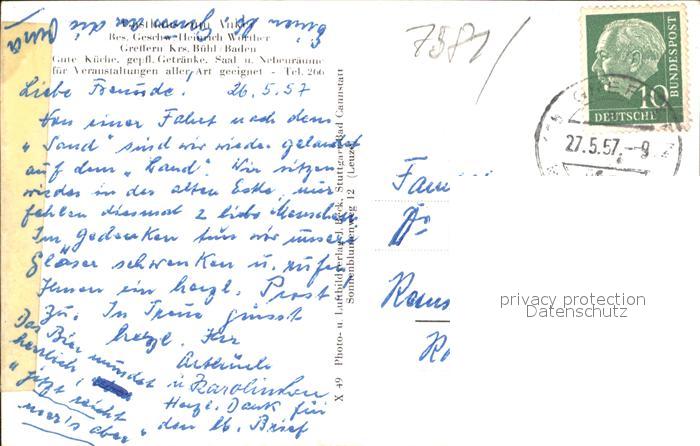 Gasthaus zum Anker
Bes. Geschw. Heinrich Wörther
Greffern Krs. Bühl/Baden
Gute Küche, gepfl. Getränke, Saal u. Nebenräume
für Veranstaltungen aller Art geeignet - Tel. 266
Liebe Freunde! 26.5.57
Von einer Fahrt nach dem
"Sand" sind wir wieder gelandet
auf dem "Land". Wir sitzen
wieder in der alten Ecke, nur
fehlen diesmal 2 liebe Menschen
Im Gedenken tun wir unsere
Gläser schwenken u. rufen
Ihnen ein herzl. Prost
zu. In Treue grüsst
herzl. Ihr
u. Karolinchen
Herzl. Dank für
den lb. Brief
Das Bier mundet
herrlich,
"jetzt reicht
mer's aber"
X 49 Photo- u. Luftbildverlag J. Beck, Stuttgart-Bad Cannstatt
Sonnenblumenweg 12 (Leuze)
7581/
DEUTSCHE BUNDESPOST
10
27.5.57.-9
Fam
privacy protection
Datenschutz